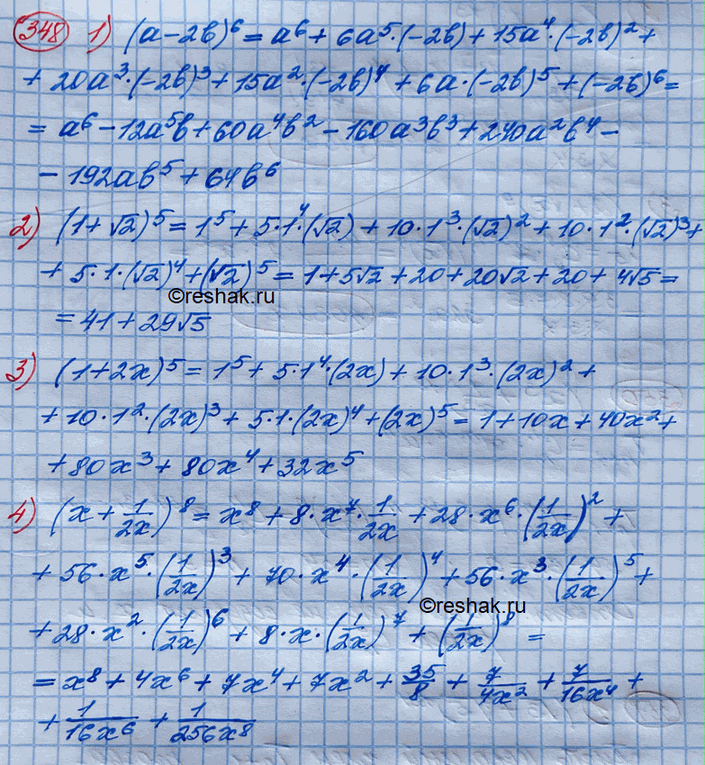 348 1) (a-2b)⁶ = a⁶ + 6a⁵·(-2b) + 15a⁴·(-2b)² +
+ 20a³·(-2b)³ + 15a²·(-2b)⁴ + 6a·(-2b)⁵ + (-2b)⁶ =
= a⁶ - 12a⁵b + 60a⁴b² - 160a³b³ + 240a²b⁴ -
- 192ab⁵ + 64b⁶
2) (1+√2)⁵ = 1⁵ + 5·1⁴·(√2) + 10·1³·(√2)² + 10·1²·(√2)³ +
+ 5·1·(√2)⁴ + (√2)⁵ = 1 + 5√2 + 20 + 20√2 + 20 + 4√5 =
©reshak.ru
= 41 + 29√5
3) (1+2x)⁵ = 1⁵ + 5·1⁴·(2x) + 10·1³·(2x)² +
+ 10·1²·(2x)³ + 5·1·(2x)⁴ + (2x)⁵ = 1 + 10x + 40x² +
+ 80x³ + 80x⁴ + 32x⁵
4) (x + 1/2x)⁸ = x⁸ + 8·x⁷·1/2x + 28·x⁶·(1/2x)² +
+ 56·x⁵·(1/2x)³ + 70·x⁴·(1/2x)⁴ + 56·x³·(1/2x)⁵ +
©reshak.ru
+ 28·x²·(1/2x)⁶ + 8·x·(1/2x)⁷ + (1/2x)⁸ =
= x⁸ + 4x⁶ + 7x⁴ + 7x² + 35/8 + 7/4x² + 7/16x⁴ +
+ 1/16x⁶ + 1/256x⁸